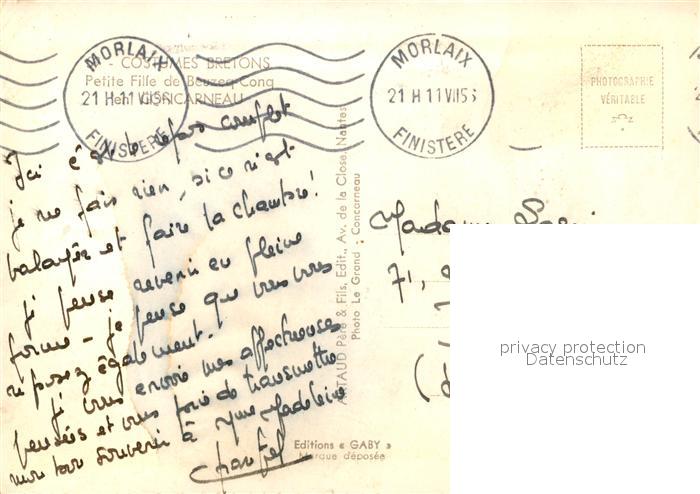 COSTUMES BRETONS
Petite Fille de Beuzec-Conq
en CONCARNEAU
MORLAIX
21 H 11 VII 56
FINISTERE
MORLAIX
21 H 11 VII 56
FINISTERE
PHOTOGRAPHIE
VÉRITABLE
Ici c'est le repos complet
je ne fais rien, si ce n'est
balayer et faire la chambre!
Je pense revenir en pleine
forme - je pense que vous vous
reposez également.
Je vous envoie mes affectueuses
pensées et vous prie de transmettre
mon bon souvenir à Mme Madeleine
Chantal
ARTAUD Père & Fils, Edit., Av. de la Close, Nantes
Photo Le Grand - Concarneau
Editions « GABY »
Marque déposée
Madame
71,
privacy protection
Datenschutz